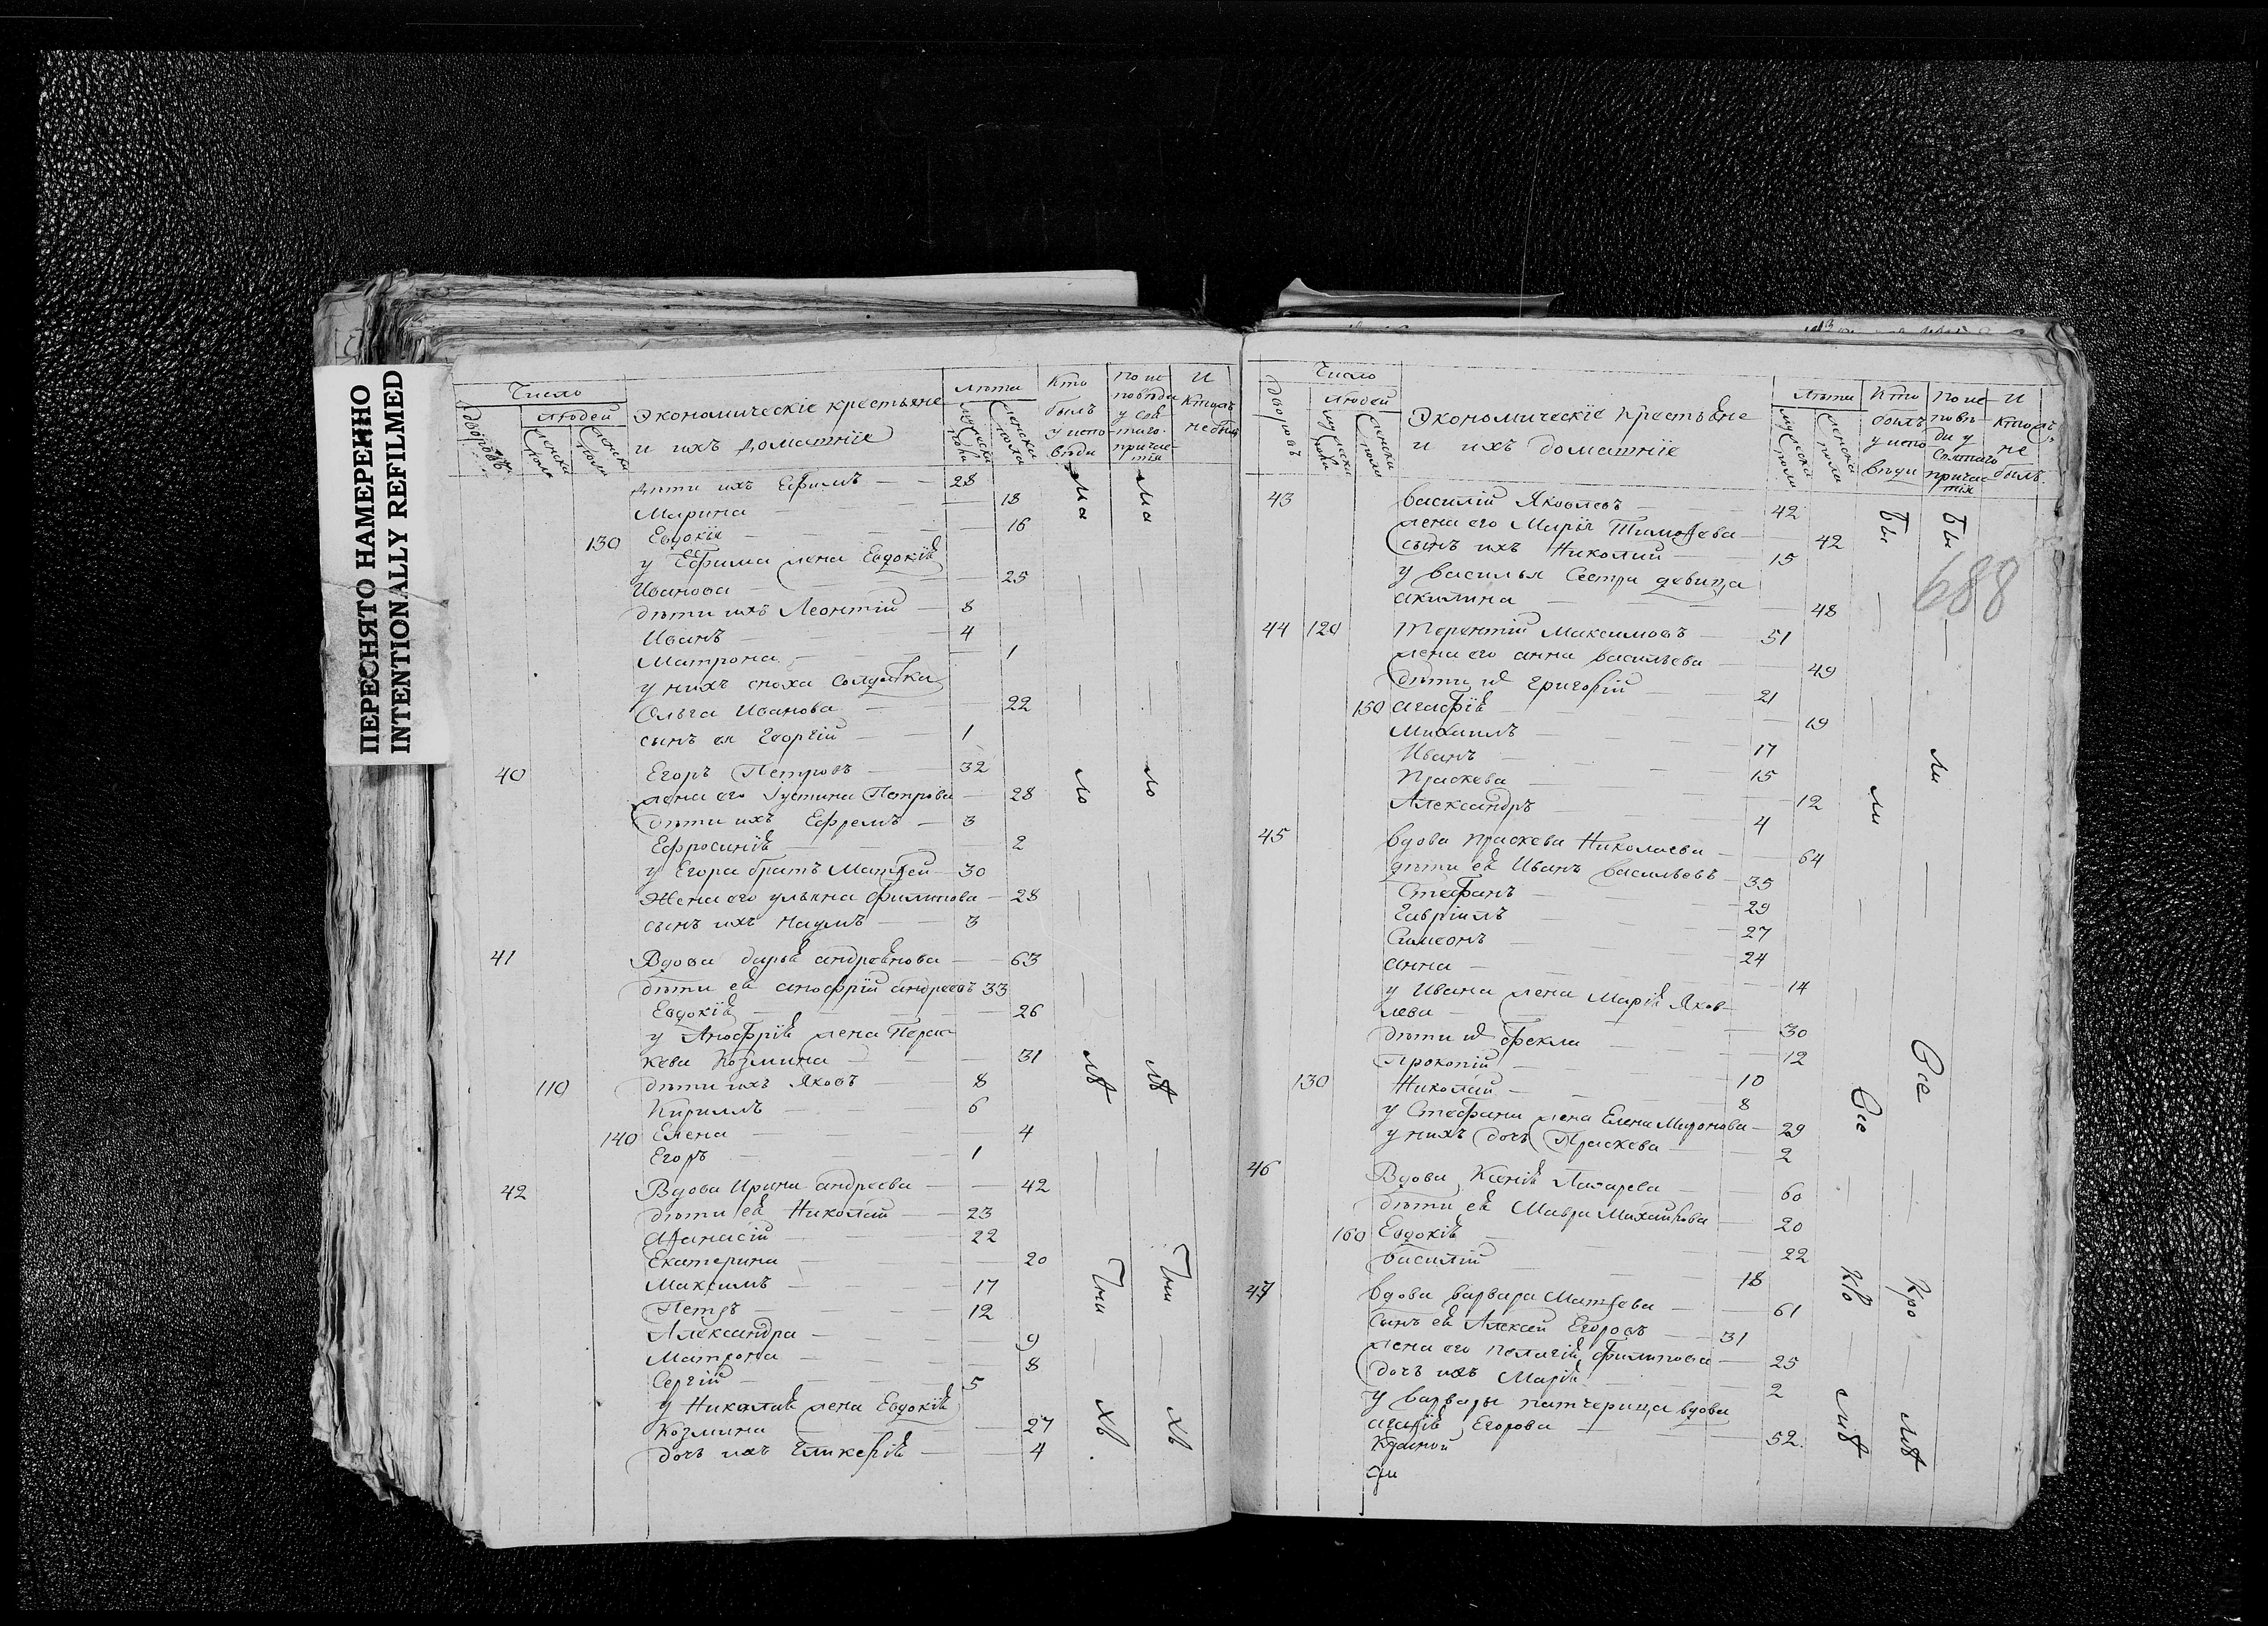 ПЕРЕСНЯТО НАМЕРЕННО
INTENTIONALLY REFILMED
Число
Дворовъ
Людей
Экономическіе крестьяне
и ихъ домашніе
лѣта
мужеска пола
женска пола
Кто былъ у исповѣди
по исповѣди у святаго причастія
И кто съ не былъ
дѣти ихъ Ефимъ — 28
Марина — 18
130 Евдокіѧ — 16
у Ефима жена Евдокіѧ
Иванова — 25
дѣти ихъ Леонтій — 8
Иванъ — 4
Матрона — 1
у нихъ сноха солдатка
Ольга Иванова — 22
сынъ ея Георгій — 1
40 Егоръ Петровъ — 32
жена его Густина Петрова — 28
дѣти ихъ Ефремъ — 3
Ефросиніѧ — 2
у Егора братъ Матѳей — 30
Жена его ульяна Филипова — 28
сынъ ихъ Наумъ — 3
41 Вдова дарьѧ андреѧнова — 63
дѣти еѧ анофрій андреевъ 33
Евдокіѧ — 26
у Анофріѧ жена Парас
кева Козмина — 31
110 дѣти ихъ Яковъ — 8
Кириллъ — 6
140 Елена — 4
Егоръ — 1
42 Вдова Ирина андреева — 42
дѣти еѧ Николай — 23
Аѳанасій — 22
Екатерина — 20
Максимъ — 17
Петръ — 12
Александра — 9
Матрона — 8
Сергій — 5
у Николаѧ жена Евдокіѧ
Козмина — 27
дочь ихъ Гликеріѧ — 4
Число
Дворовъ
Людей
мужеска пола
женска пола
Экономическіе крестьѧне
и ихъ домашніе
лѣта
мужеска пола
женска пола
Кто былъ у исповѣди
по исповѣди у святаго причастія
И кто съ не былъ.
688
43 Василій Яковлевъ — 42
жена его Маріѧ Тимоѳеева — 42
сынъ ихъ Николай — 15
у василья сестра девица
акилина — 48
44 120 Терентій Максимовъ — 51
жена его анна васильева — 49
дѣти их Григорій — 21
150 агафіѧ — 19
Михаилъ — 17
Иванъ — 15
Праскева — 12
Александръ — 4
45 вдова праскева Николаева — 64
дѣти еѧ Иванъ васильевъ — 35
Стефанъ — 29
Гавріилъ — 27
Симеонъ — 24
анна — 14
у Ивана жена Маріѧ Яков
лева — 30
дѣти их Фекла — 12
Прокопій — 10
130 Николай — 8
у Стефана жена Елена Миронова — 29
у нихъ дочь Праскева — 2
46 Вдова Ксеніѧ Лазарева — 60
дѣти еѧ Мавра Михайлова — 20
160 Евдокіѧ — 22
василій — 18
47 вдова варвара Матѳеева — 61
сынъ еѧ Алексей Егоровъ — 31
жена его пелагіѧ Филипова — 25
дочь ихъ Маріѧ — 2
у варвары патчерица вдова
агафіѧ Егорова — 52